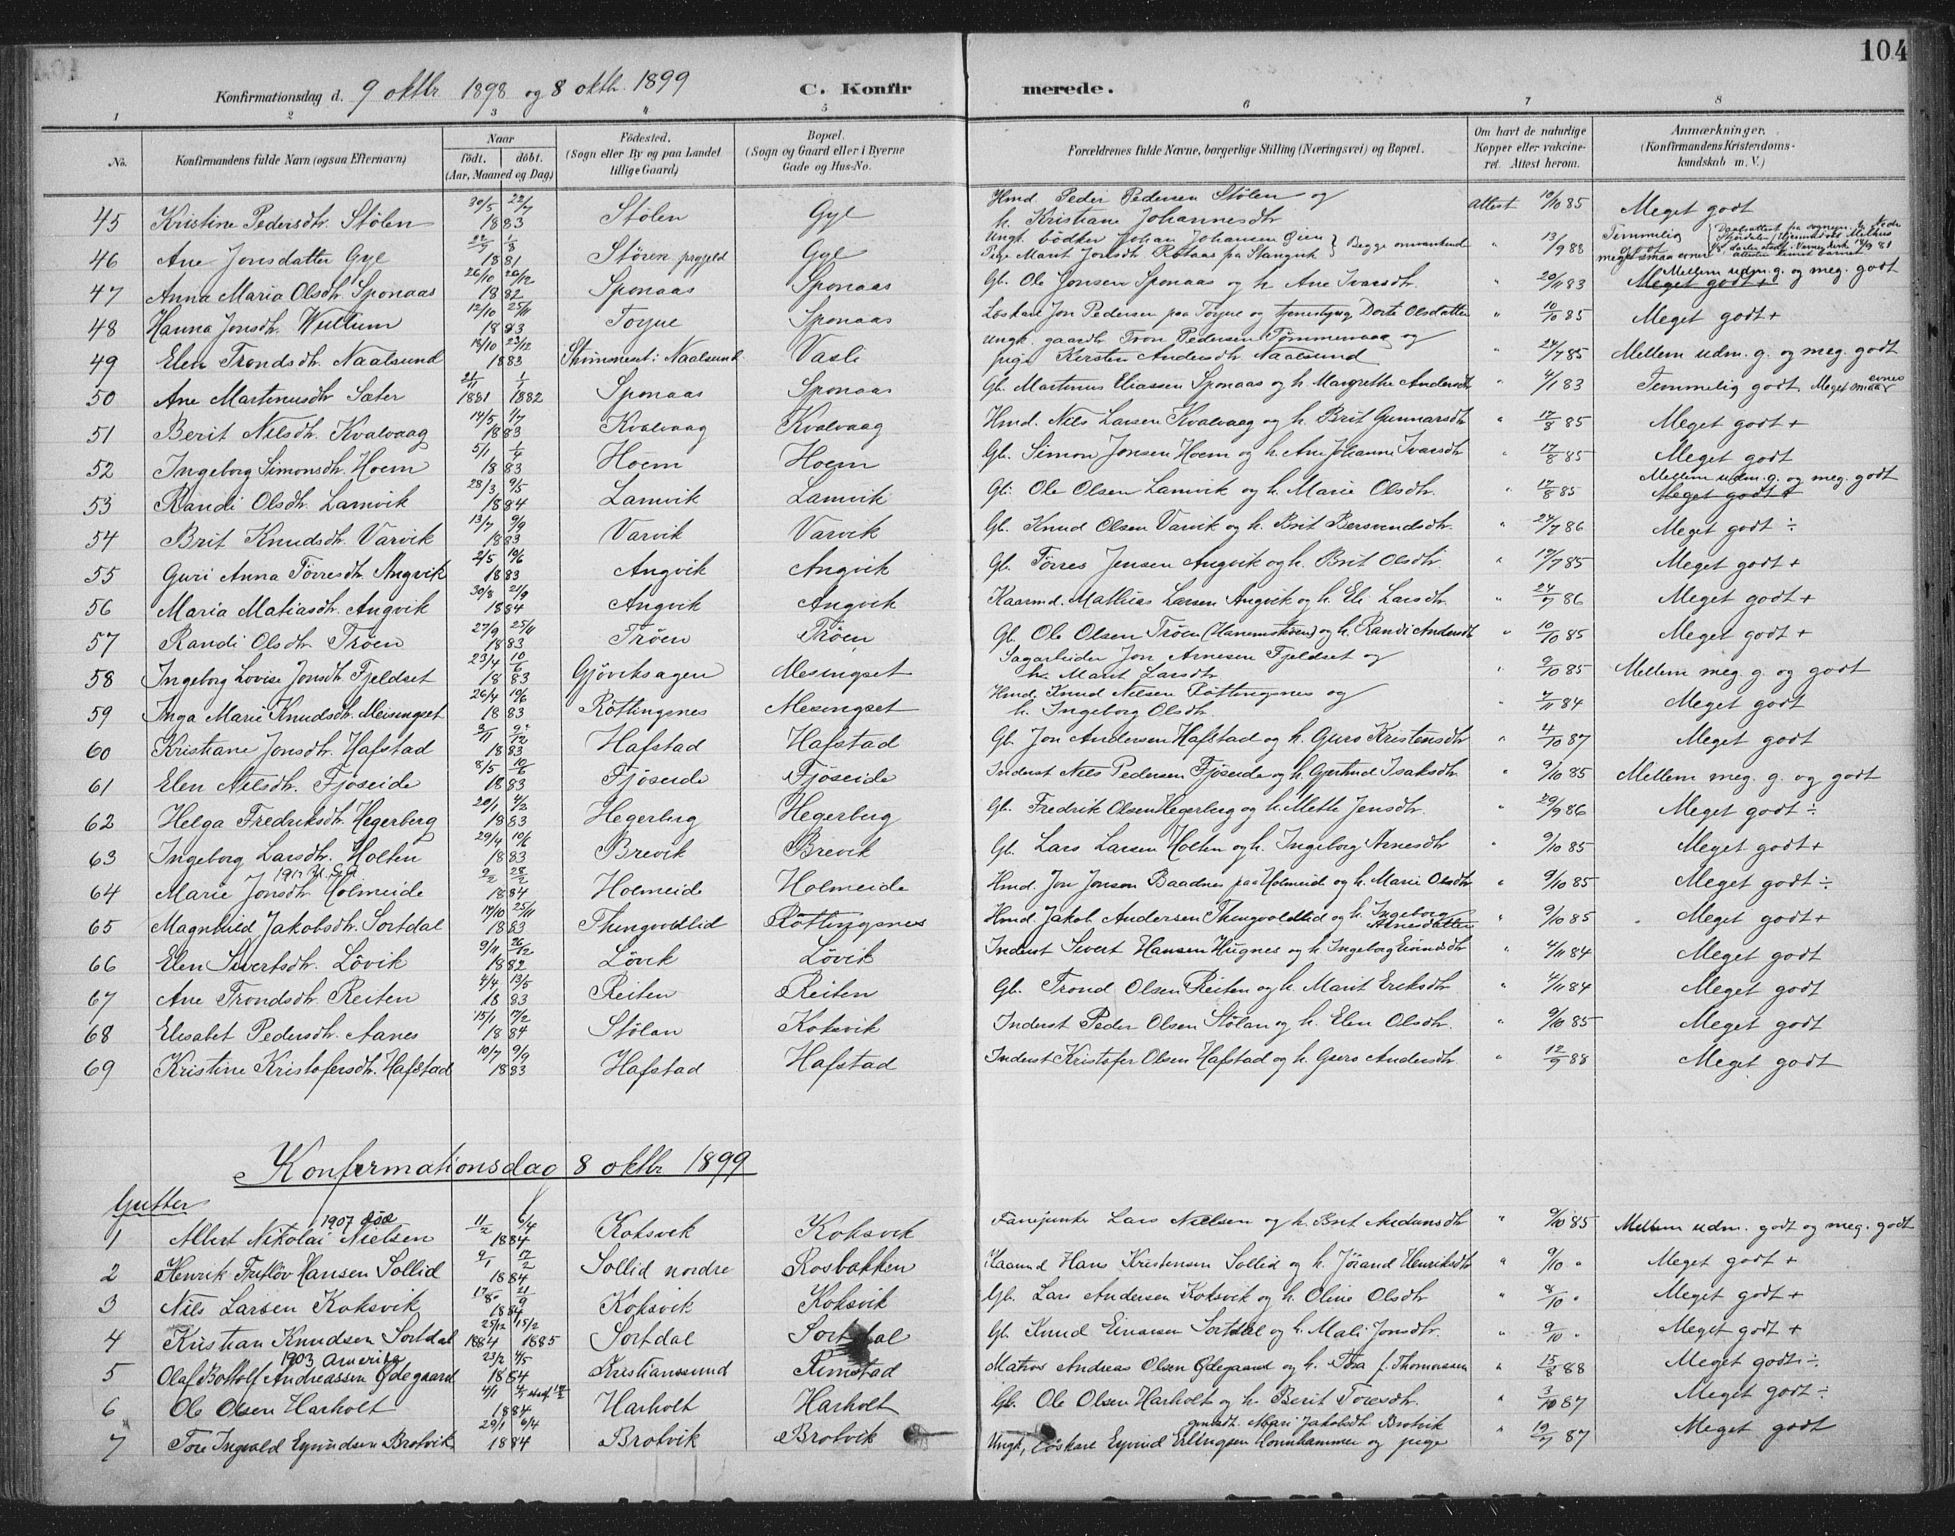 104
Konfirmationsdag d. 9 oktbr 1898 og 8 oktb. 1899 C. Konfirmerede.
1 2 3 4 5 6 7 8
No. Konfirmandens fulde Navn (ogsaa Efternavn) Naar født. døbt. (Aar, Maaned og Dag) Fødested. (Sogn eller By og paa Landet tillige Gaard) Bopæl. (Sogn og Gaard eller i Byerne Gade og Hus-No. Forældrenes fulde Navne, borgerlige Stilling (Næringsvei) og Bopæl. Om havt de naturlige Kopper eller vakcineret. Attest herom. Anmærkninger. (Konfirmandens Kristendomskundskab m. V.)
45 Kristine Pedersdtr. Stölen 30/5 22/7 1883 Stölen Gyl Hmd Peder Pedersen Stölen og h. Kristiane Johannesdtr attest 19/10 85 Meget godt
46 Ane Jonsdatter Gyl 1/8 1881 Stören prgjeld Gyl Ungk. bödker Johan Johansen Öien Pige Marit Jonsdtr Rötaas paa Stangvik } Begge omvankende " 13/9 88 Temmelig godt meget smaa evner
47 Anna Maria Olsdtr. Sponaas 26/10 26/12 1882 Sponaas Sponaas Gb. Ole Jonsen Sponaas og h. Ane Ivarsdtr. " 20/11 83 Meget godt + Mellem udm. g. og meg. godt
48 Hanna Jonsdtr. Wullum 12/10 25/11 1883 Torjue Sponaas Löskarl Jon Pedersen paa Torjue og tjenestpig Dorte Olsdatter " 10/10 85 Meget godt +
49 Elen Trondsdtr. Naalsund 18/10 23/12 1883 Strömment i Naalsund Vasli Ungk. gaardbr Tron Pedersen Tömmervaag og pige Kersten Andersdtr Naalsund " 24/7 85 Mellem udm. g. og meg. godt
50 Ane Martinusdtr. Sæter 21/11 1881 1/1 1882 Sponaas Sponaas Gb. Martinus Eliassen Sponaas og h. Margrethe Andersdtr " 4/1 83 Temmelig godt Meget smaa evner
51 Berit Nilsdtr. Kvalvaag 14/5 1/7 1883 Kvalvaag Kvalvaag Hmd. Nils Larsen Kvalvaag og h. Brit Gunnarsdtr " 17/8 85 Meget godt +
52 Ingeborg Simonsdtr. Hoem 5/1 1/4 1883 Hoem Hoem Gb. Simon Jonsen Hoem og h. Ane Johanne Ivarsdtr " 17/8 85 Meget godt
53 Randi Olsdtr. Lamvik 28/3 9/5 1884 Lamvik Lamvik Gb. Ole Olsen Lamvik og h. Marie Olsdtr. " 17/8 85 Mellem udm. g. og meg. godt Meget godt +
54 Brit Knudsdtr. Varvik 13/7 9/9 1883 Varvik Varvik Gb. Knud Olsen Varvik og h. Brit Bersvendsdtr. " 24/7 86 Meget godt ÷
55 Guri Anna Törresdtr. Angvik 2/5 10/6 1883 Angvik Angvik Gb. Törres Jensen Angvik og h. Brit Olsdtr. " 19/7 85 Meget godt +
56 Maria Matiasdtr. Angvik 30/8 21/9 1884 Angvik Angvik Kaarmd. Mathias Larsen Angvik og h. Eli Larsdtr. " 24/7 86 Meget godt +
57 Randi Olsdtr. Tröen 27/9 25/11 1883 Tröen Tröen Gb. Ole Olsen Tröen og h. Randi Andersdtr " 10/10 85 Meget godt +
58 Ingeborg Lovise Jonsdtr. Fjeldset 23/4 10/6 1883 Gjöviksagen Mesingset Sagarbeider Jon Arnesen Fjeldset og h. Marit Larsdtr " 9/10 85 Mellem meg. g. og godt
59 Inga Marie Knudsdtr. Meisingset 26/4 10/6 1883 Röttingsnes Mesingset Hmd. Knud Nilsen Röttingsnes og h. Ingeborg Olsdtr. " 4/11 84 Meget godt
60 Kristiane Jonsdtr. Hafstad 3/11 9/12 1883 Hafstad Hafstad Gb. Jon Andersen Hafstad og h. Guro Kristensdtr " 4/10 87 Meget godt
61 Elen Nilsdtr. Fjöseide 8/5 10/6 1883 Fjöseide Fjöseide Inderst Nils Pedersen Fjöseide og h. Gjertrud Isaksdtr. " 9/10 85 Mellem meg. g. og godt
62 Helga Fredriksdtr. Hegerberg 20/1 4/3 1883 Hegerberg Hegerberg Gb. Fredrik Olsen Hegerberg og h. Mette Jensdtr. " 29/9 86 Meget godt ÷
63 Ingeborg Larsdtr. Holten 29/4 10/6 1883 Brevik Brevik Gb. Lars Larsen Holten og h. Ingeborg Arnesdtr " 9/10 85 Meget godt +
64 Marie Jonsdtr. Holmeide 9/2 28/2 1884 Holmeide Holmeide Hmd. Jon Jonson Baadnes paa Holmeid og h. Marie Olsdtr " 9/10 85 Meget godt ÷
65 Magnhild Jakobsdtr. Sortdal 14/10 25/11 1883 Thingvoldlid Röttingsnes Hmd. Jakob Andersen Thingvoldlid og h. Ingeborg Arnesdatter " 9/10 85 Meget godt +
66 Elen Sivertsdtr. Lövik 9/11 26/12 1882 Lövik Lövik Inderst Sivert Hansen Hugnes og h. Ingeborg Eivindsdtr " 4/11 84 Meget godt
67 Ane Trondsdtr. Reiten 4/4 13/5 1883 Reiten Reiten Gb. Trond Olsen Reiten og h. Marit Eriksdtr " 4/11 84 Meget godt
68 Elisabet Pedersdtr. Aanes 15/1 17/2 1884 Stölan Koksvik Inderst Peder Olsen Stölan og h. Elen Olsdtr. " 9/10 85 Meget godt
69 Kristine Kristofersdtr. Hafstad 10/7 9/9 1883 Hafstad Hafstad Inderst Kristofer Olsen Hafstad og h. Guro Andersdtr. " 12/9 88 Meget godt
Konfirmationsdag 8 oktbr 1899
Gutter
1 Albert Nikolai Nielsen 1907 död 11/2 6/4 1884 Koksvik Koksvik Fanejunker Lars Nielsen og h. Brit Audunsdtr " 9/10 85 Mellem udm. godt og meg. godt
2 Henrik Fritlöv Hansen Sollid 9/1 17/2 1884 Sollid nordre Rosbakken Kaarmd Hans Kristensen Sollid og h. Jörand Henriksdtr " 9/10 " Meget godt +
3 Nils Larsen Koksvik 17/8 21/9 1884 Koksvik Koksvik Gb. Lars Andersen Koksvik og h. Oline Olsdtr " 9/10 " Meget godt +
4 Kristian Knudsen Sortdal 25/12 1884 15/2 1885 Sortdal Sortdal Gb. Knud Einarsen Sortdal og h. Mali Jonsdtr. " 9/10 " Meget godt +
5 Olaf Bottolf Andreassen Ødegaard 1903 Amerika 23/2 4/5 1884 Kristianssund Rimstad Matros Andreas Olsen Ødegaard og h. Tora f. Thomassen " 15/8 88 Meget godt ÷
6 Ole Olsen Harholt 4/1 1884 Harholt Harholt Gb. Ole Olsen Harholt og h. Berit Toresdtr. " 3/10 87 Meget godt ÷
7 Tore Ingvald Eyvindsen Brotvik 29/1 6/4 1884 Brotvik Brotvik Ungk. Löskarl Eyvind Erlingsen Lonnhammer og pige Mari Jakobsdtr Brotvik " 19/7 87 Meget godt